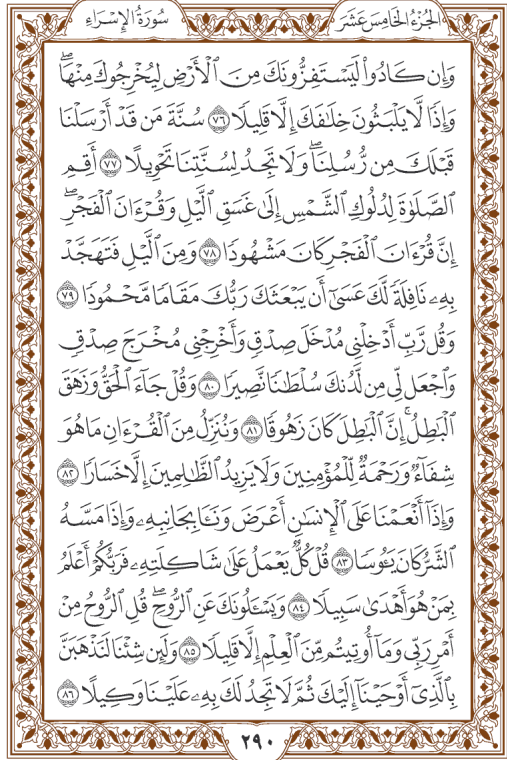 الجُزْءُ الخَامِسَ عَشَرَ سُورَةُ الإِسْرَاءِ
وَإِن كَادُوا۟ لَيَسْتَفِزُّونَكَ مِنَ ٱلْأَرْضِ لِيُخْرِجُوكَ مِنْهَاۖ
وَإِذًا لَّا يَلْبَثُونَ خِلَٰفَكَ إِلَّا قَلِيلًا ٧٦ سُنَّةَ مَن قَدْ أَرْسَلْنَا
قَبْلَكَ مِن رُّسُلِنَاۖ وَلَا تَجِدُ لِسُنَّتِنَا تَحْوِيلًا ٧٧ أَقِمِ
ٱلصَّلَوٰةَ لِدُلُوكِ ٱلشَّمْسِ إِلَىٰ غَسَقِ ٱلَّيْلِ وَقُرْءَانَ ٱلْفَجْرِۖ
إِنَّ قُرْءَانَ ٱلْفَجْرِ كَانَ مَشْهُودًا ٧٨ وَمِنَ ٱلَّيْلِ فَتَهَجَّدْ
بِهِۦ نَافِلَةً لَّكَ عَسَىٰٓ أَن يَبْعَثَكَ رَبُّكَ مَقَامًا مَّحْمُودًا ٧٩
وَقُل رَّبِّ أَدْخِلْنِى مُدْخَلَ صِدْقٍ وَأَخْرِجْنِى مُخْرَجَ صِدْقٍ
وَٱجْعَل لِّى مِن لَّدُنكَ سُلْطَٰنًا نَّصِيرًا ٨٠ وَقُلْ جَآءَ ٱلْحَقُّ وَزَهَقَ
ٱلْبَٰطِلُۚ إِنَّ ٱلْبَٰطِلَ كَانَ زَهُوقًا ٨١ وَنُنَزِّلُ مِنَ ٱلْقُرْءَانِ مَا هُوَ
شِفَآءٌ وَرَحْمَةٌ لِّلْمُؤْمِنِينَ وَلَا يَزِيدُ ٱلظَّٰلِمِينَ إِلَّا خَسَارًا ٨٢
وَإِذَآ أَنْعَمْنَا عَلَى ٱلْإِنسَٰنِ أَعْرَضَ وَنَـَٔا بِجَانِبِهِۦ وَإِذَا مَسَّهُ
ٱلشَّرُّ كَانَ يَـُٔوسًا ٨٣ قُلْ كُلٌّ يَعْمَلُ عَلَىٰ شَاكِلَتِهِۦ فَرَبُّكُمْ أَعْلَمُ
بِمَنْ هُوَ أَهْدَىٰ سَبِيلًا ٨٤ وَيَسْـَٔلُونَكَ عَنِ ٱلرُّوحِۖ قُلِ ٱلرُّوحُ مِنْ
أَمْرِ رَبِّى وَمَآ أُوتِيتُم مِّنَ ٱلْعِلْمِ إِلَّا قَلِيلًا ٨٥ وَلَئِن شِئْنَا لَنَذْهَبَنَّ
بِٱلَّذِىٓ أَوْحَيْنَآ إِلَيْكَ ثُمَّ لَا تَجِدُ لَكَ بِهِۦ عَلَيْنَا وَكِيلًا ٨٦
٢٩٠